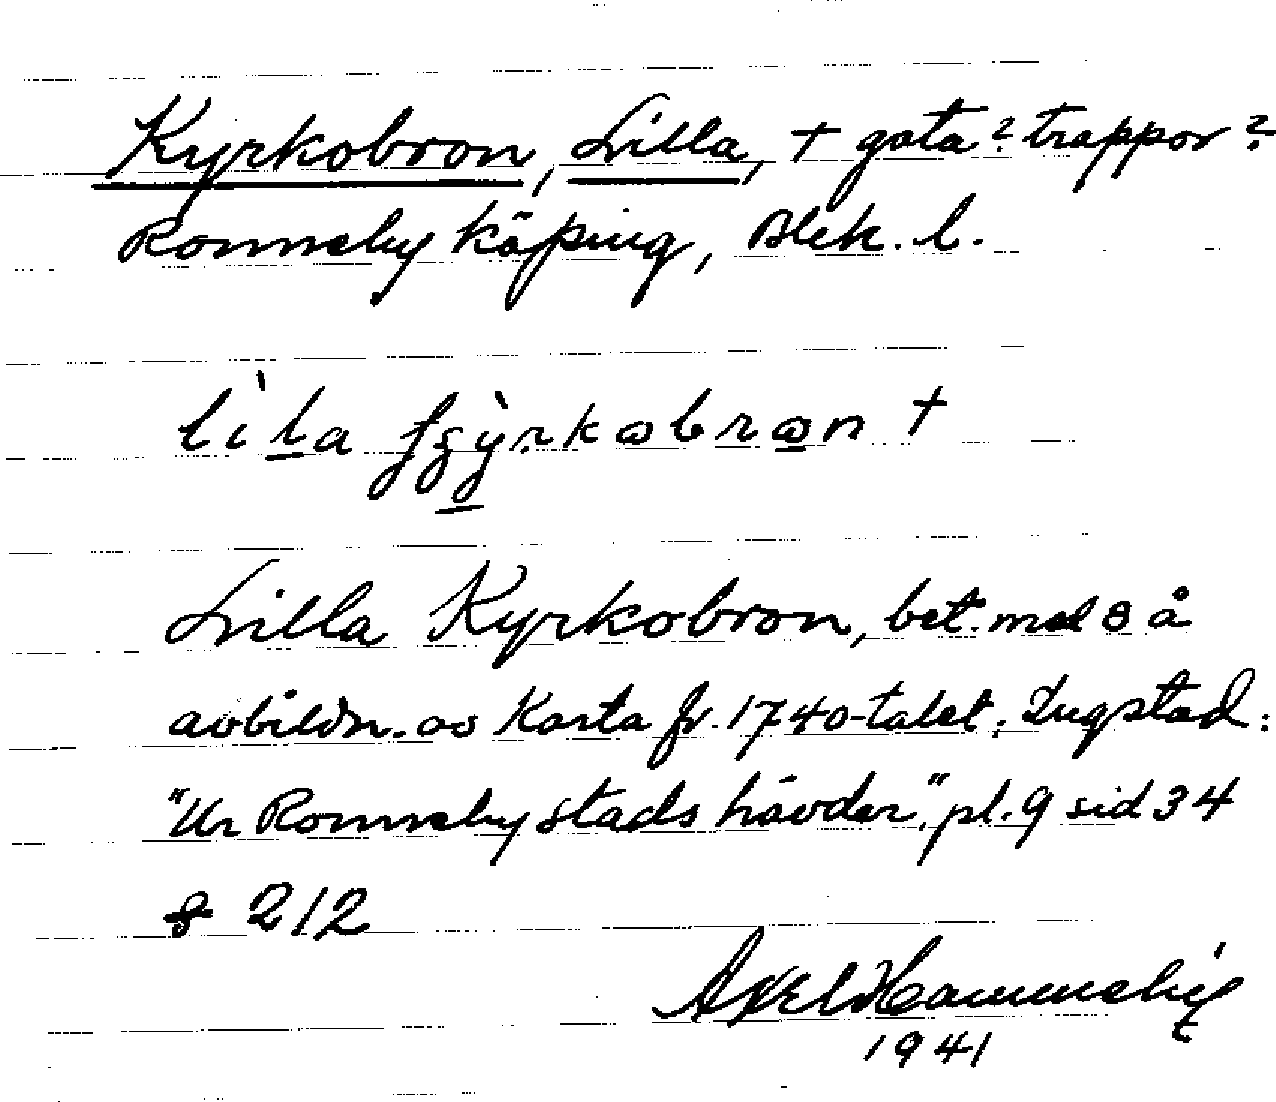 Kyrkobron, Lilla, + gata? trappor?
Ronneby köping, Blek. l.
lìla fʒỳrkobron +
Lilla Kyrkobron, bet. med 8 å
avbildn. av Karta fr. 1740-talet:
"Ur Ronneby stads hävder", pl. 9 sid 34
212
Axel
1941